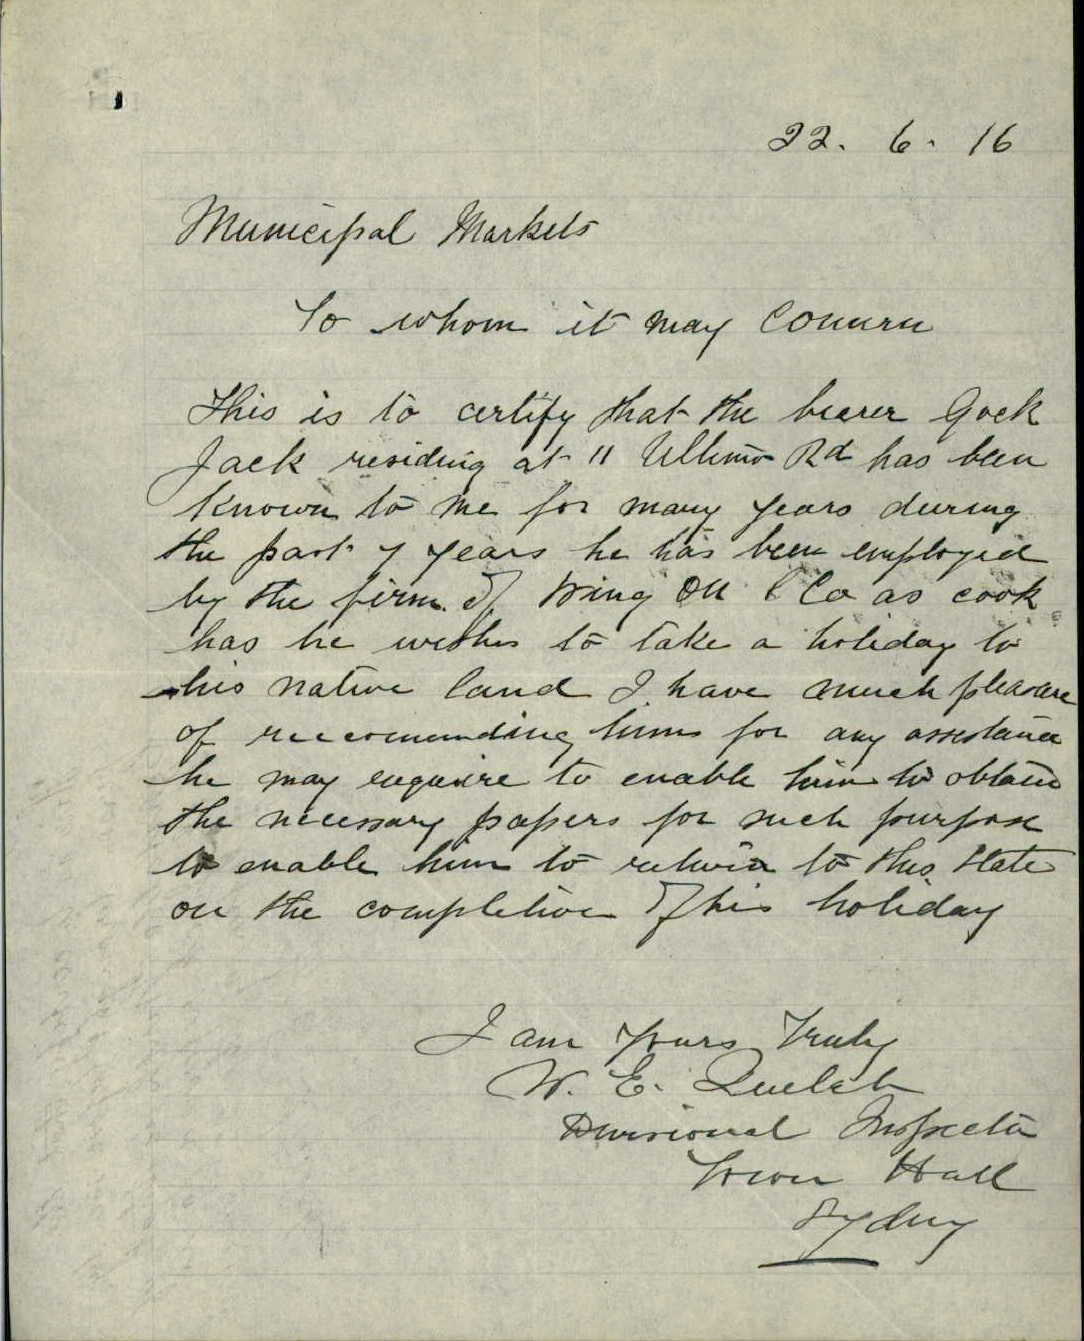 22. 6. 16
Municipal Markets
To whom it may Concern
This is to certify that the bearer Gock
Jack residing at 11 Ultimo Rd has been
known to me for many years during
the past 7 years he has been employed
by the firm of Wing On & Co as cook
has he wishes to take a holiday to
his native land I have much pleasure
of reccomending him for any assistance
he may enquire to enable him to obtain
the necessary papers for such purpose
to enable him to return to this State
on the completion of his holiday
I am Yours Truly
W. E.
Divisional Inspector
Town Hall
Sydney